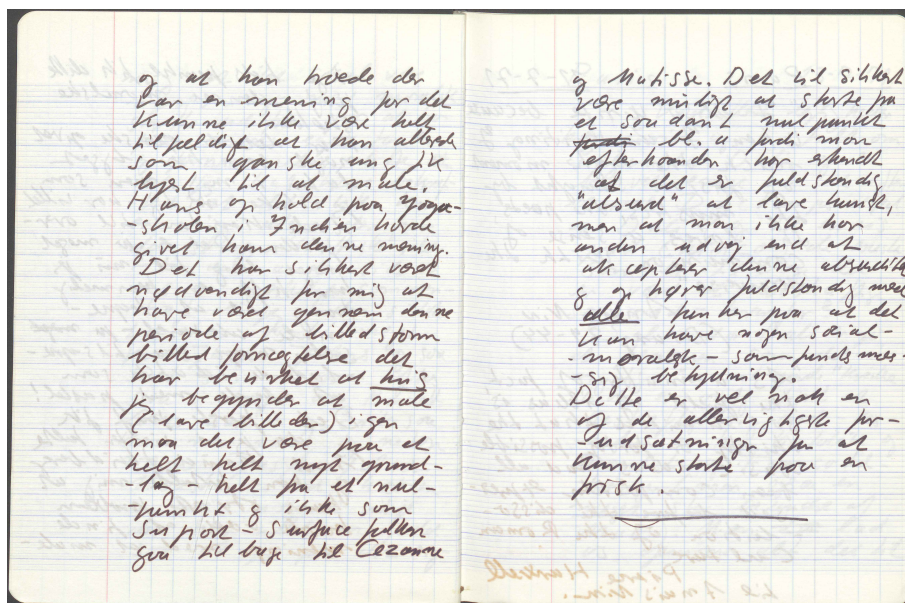 og at han troede der
var en mening for det
kunne ikke være helt
tilfældigt at han allerede
som ganske ung fik
lyst til at male.
Hans ophold paa Yoga-
-skolen i Indien havde
givet ham denne mening.
Det har sikkert været
nødvendigt for mig at
have været gennem denne
periode af billedstorm
billedfornægtelse det
har bevirket at hvis
jeg begynder at male
(lave billeder) igen
maa det være paa et
helt helt nyt grund-
-lag - helt fra et nul-
-punkt og ikke som
Suport - Surface folkene
gaa tilbage til Cezanne
og Matisse. Det vil sikkert
være muligt at starte fra
et saadant nulpunkt
fordi bl. a fordi man
efterhaanden har erkendt
at det er fuldstændig
"absurd" at lave kunst,
men at man ikke har
anden udvej end at
akceptere denne absurditet
og ophører fuldstændig med
alle tanker paa at det
kan have nogen social-
-moralsk - samfundsmæs-
-sig betydning.
Dette er vel nok en
af de allervigtigste for-
-udsætninger for at
kunne starte paa en
frisk.